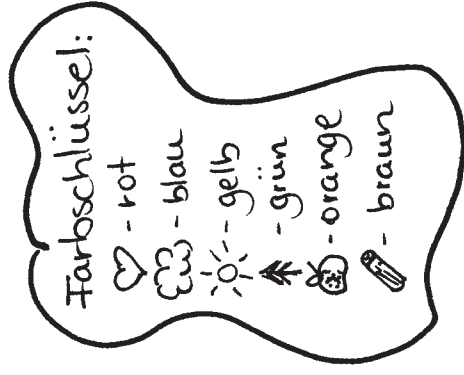 Farbschlüssel:
- rot
- blau
- gelb
- grün
- orange
- braun